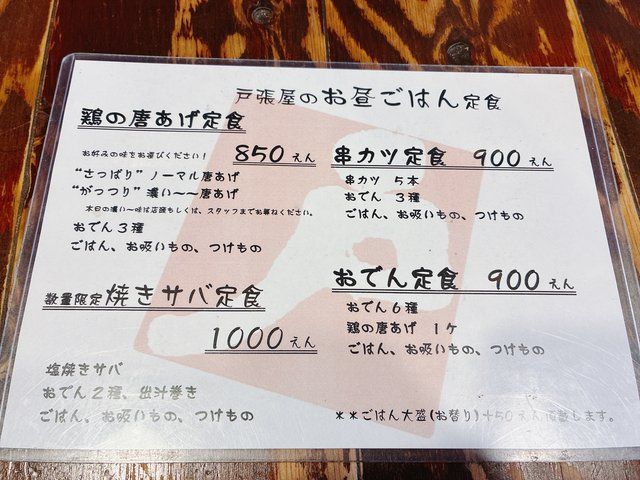 戸張屋のお昼ごはん定食
鶏の唐あげ定食
お好みの味をお選びください！
850えん
"さっぱり" ノーマル唐あげ
"がっつり" 濃い〜〜唐あげ
本日の濃い〜味は店頭もしくは、スタッフまでお尋ねください。
おでん３種
ごはん、お吸いもの、つけもの
数量限定焼きサバ定食
1000えん
塩焼きサバ
おでん２種、出汁巻き
ごはん、お吸いもの、つけもの
串カツ定食 900えん
串カツ ５本
おでん ３種
ごはん、お吸いもの、つけもの
おでん定食 900えん
おでん６種
鶏の唐あげ 1ケ
ごはん、お吸いもの、つけもの
＊＊ごはん大盛(お替り)＋50えん頂きします。